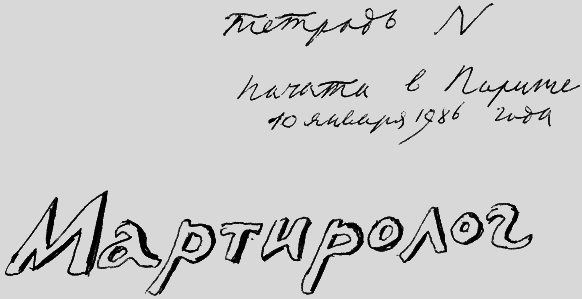 тетрадь N
начата в Париже
10 января 1986 года
Мартиролог